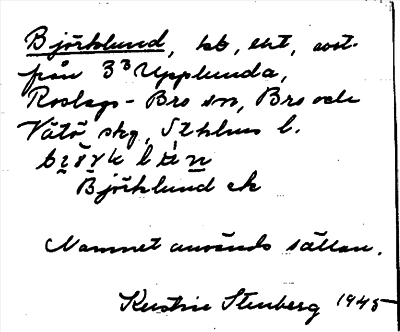 Björklund, hb, eht, avst.
från 3³ Upplunda,
Roslags-Bro sn, Bro och
Vätö skg, Sthlms l.
Björklund ek
Namnet används sällan.
Kerstin Stenberg 1945